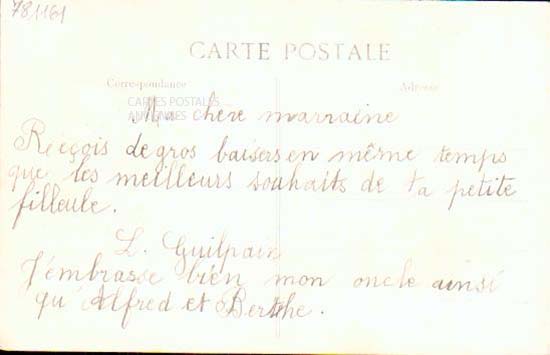 781161
CARTE POSTALE
Correspondance
Adresse
CARTES POSTALES
ANCIENNES
Ma chère marraine
Reçois de gros baisers en même temps
que les meilleurs souhaits de ta petite
filleule.
L. Guilpain
J'embrasse bien mon oncle ainsi
qu'Alfred et Berthe.